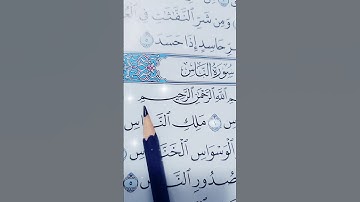 وَمِن شَرِّ ٱلنَّفَّٰثَٰتِ فِى
حَاسِدٍ إِذَا حَسَدَ ٥
سُورَةُ النَّاسِ
ٱللَّهِ ٱلرَّحْمَٰنِ ٱلرَّحِيمِ
مَلِكِ
ٱلْوَسْوَاسِ ٱلْخَنَّاسِ
صُدُورِ ٱلنَّاسِ ٥